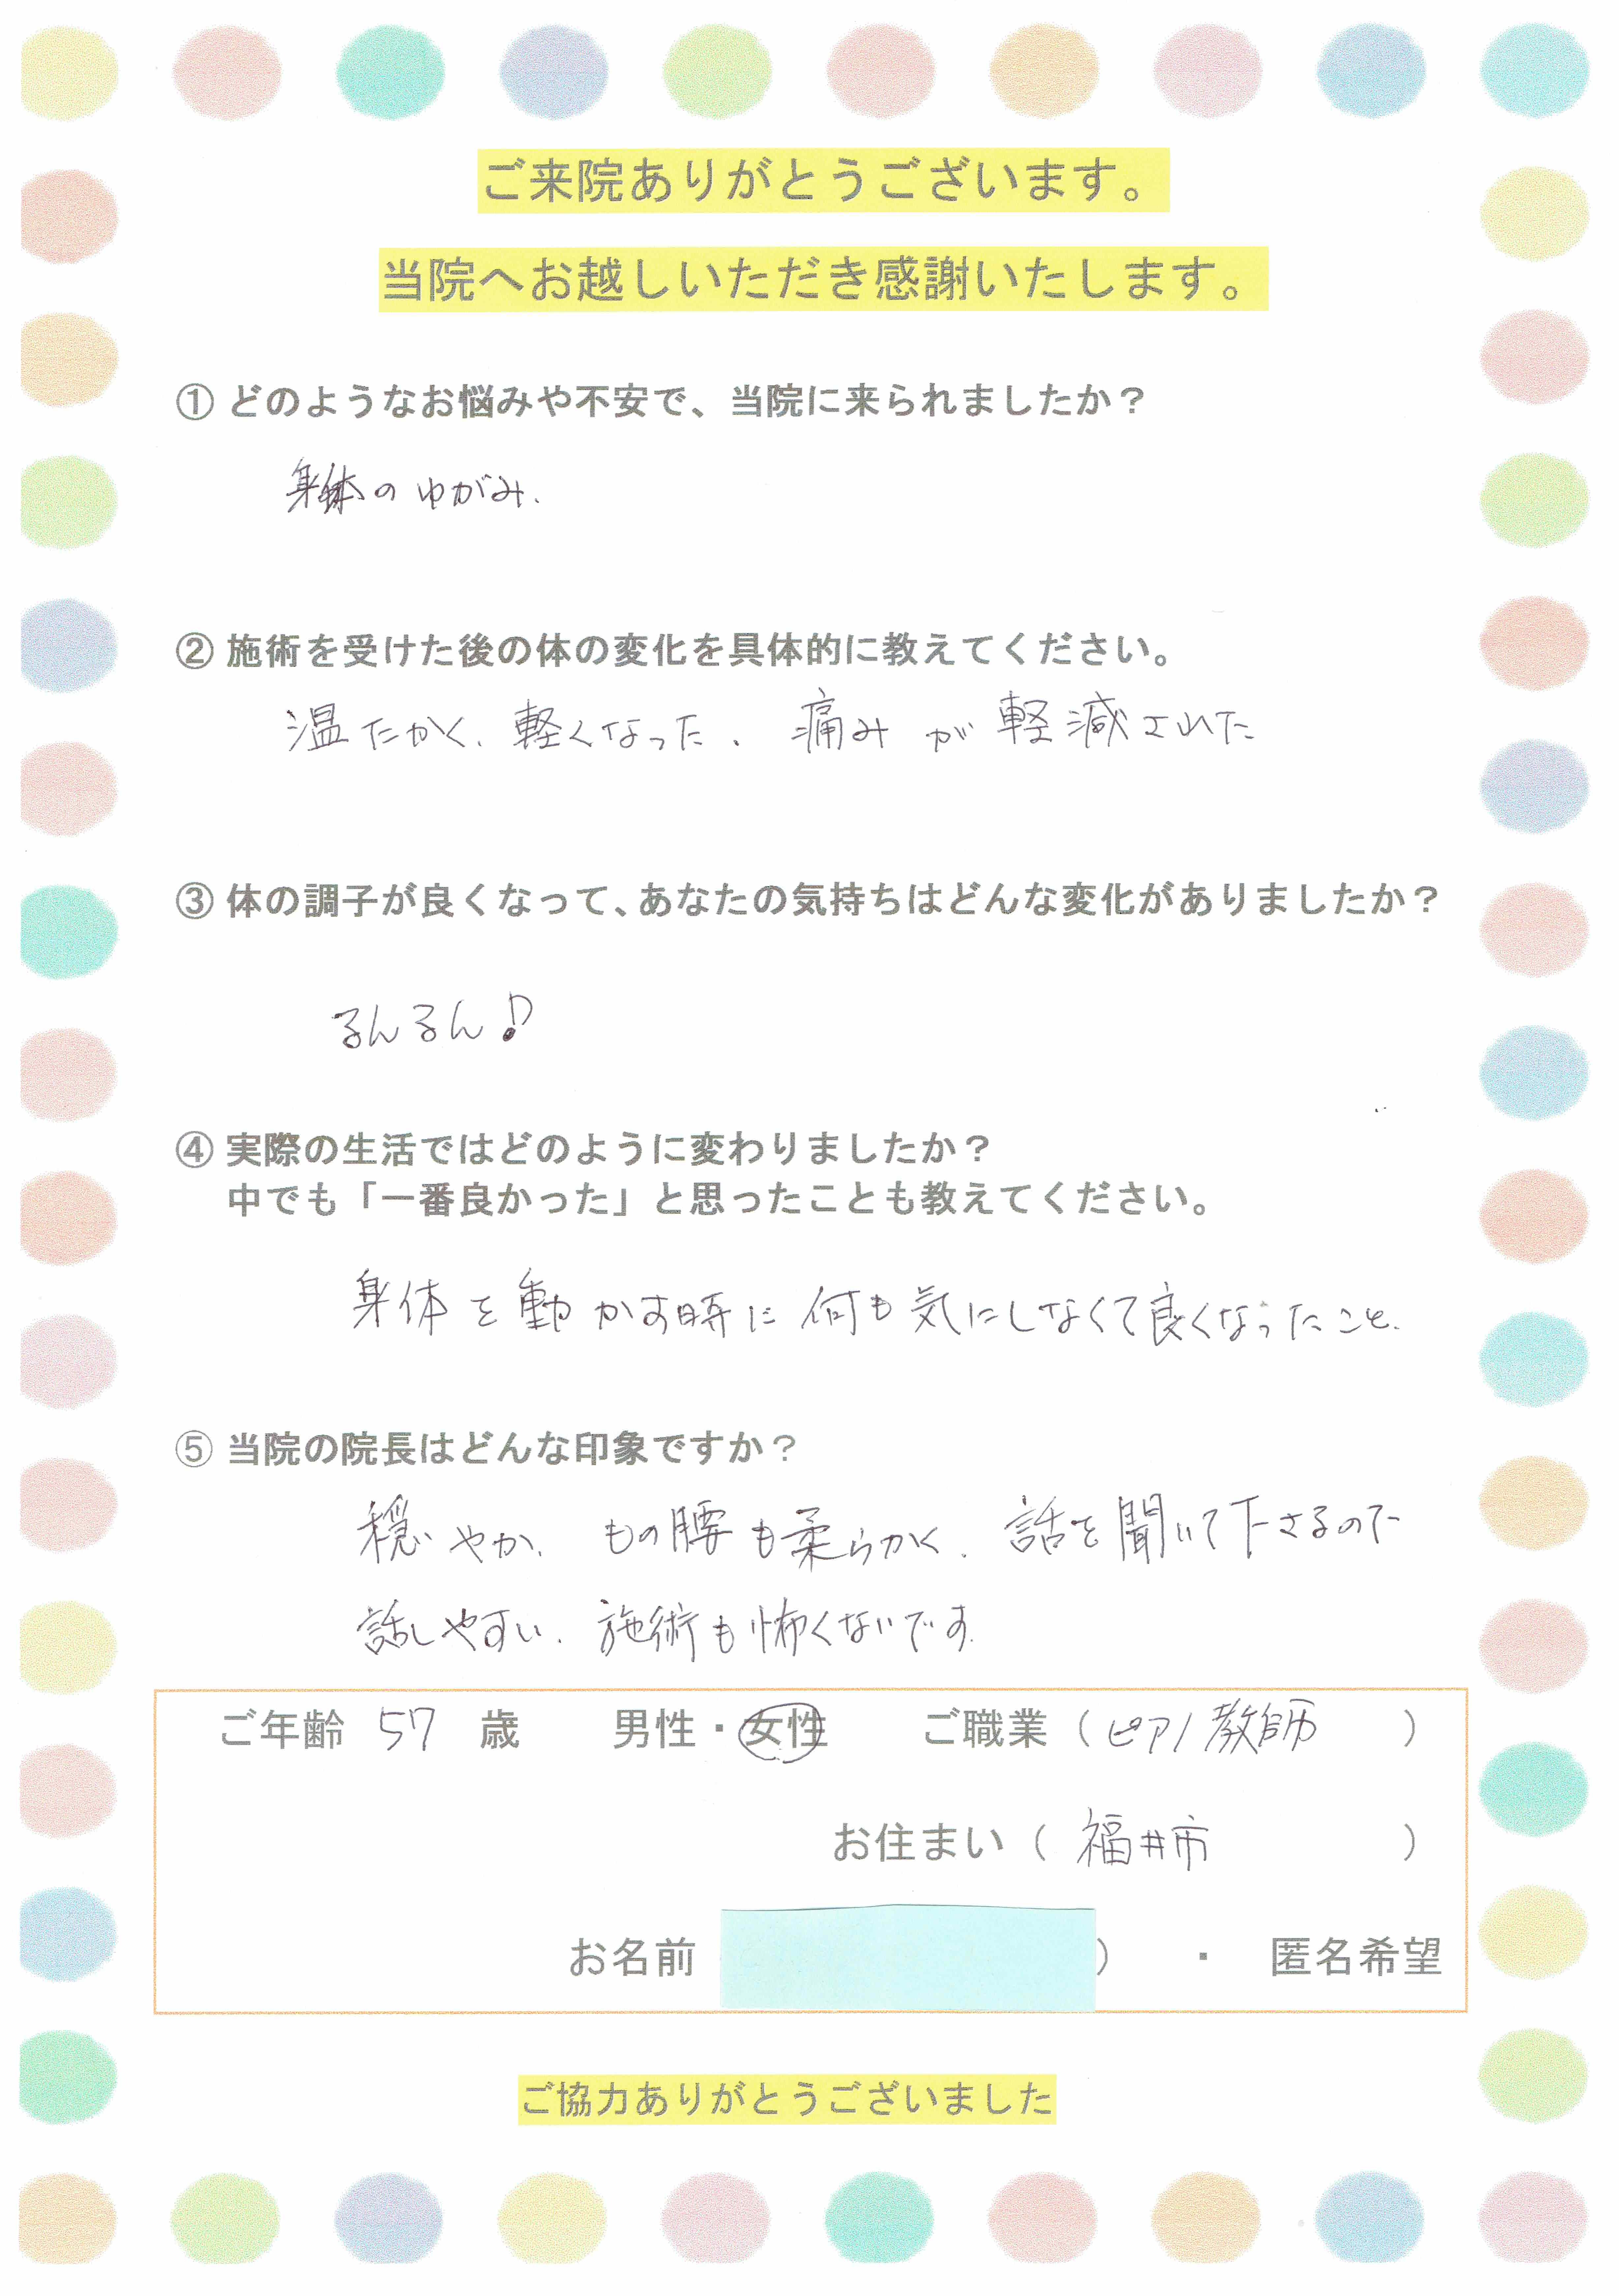 ご来院ありがとうございます。
当院へお越しいただき感謝いたします。
① どのようなお悩みや不安で、当院に来られましたか？
身体のゆがみ.
② 施術を受けた後の体の変化を具体的に教えてください。
温たかく、軽くなった. 痛みが軽減された
③ 体の調子が良くなって、あなたの気持ちはどんな変化がありましたか？
るんるん♪
④ 実際の生活ではどのように変わりましたか？
中でも「一番良かった」と思ったことも教えてください。
身体を動かす時に何も気にしなくて良くなったこと.
⑤ 当院の院長はどんな印象ですか？
穏やか. もの腰も柔らかく. 話を聞いて下さるので
話しやすい. 施術も怖くないです.
ご年齢 57 歳 男性・女性 ご職業（ピアノ教師）
お住まい（福井市）
お名前 ） ・ 匿名希望
ご協力ありがとうございました